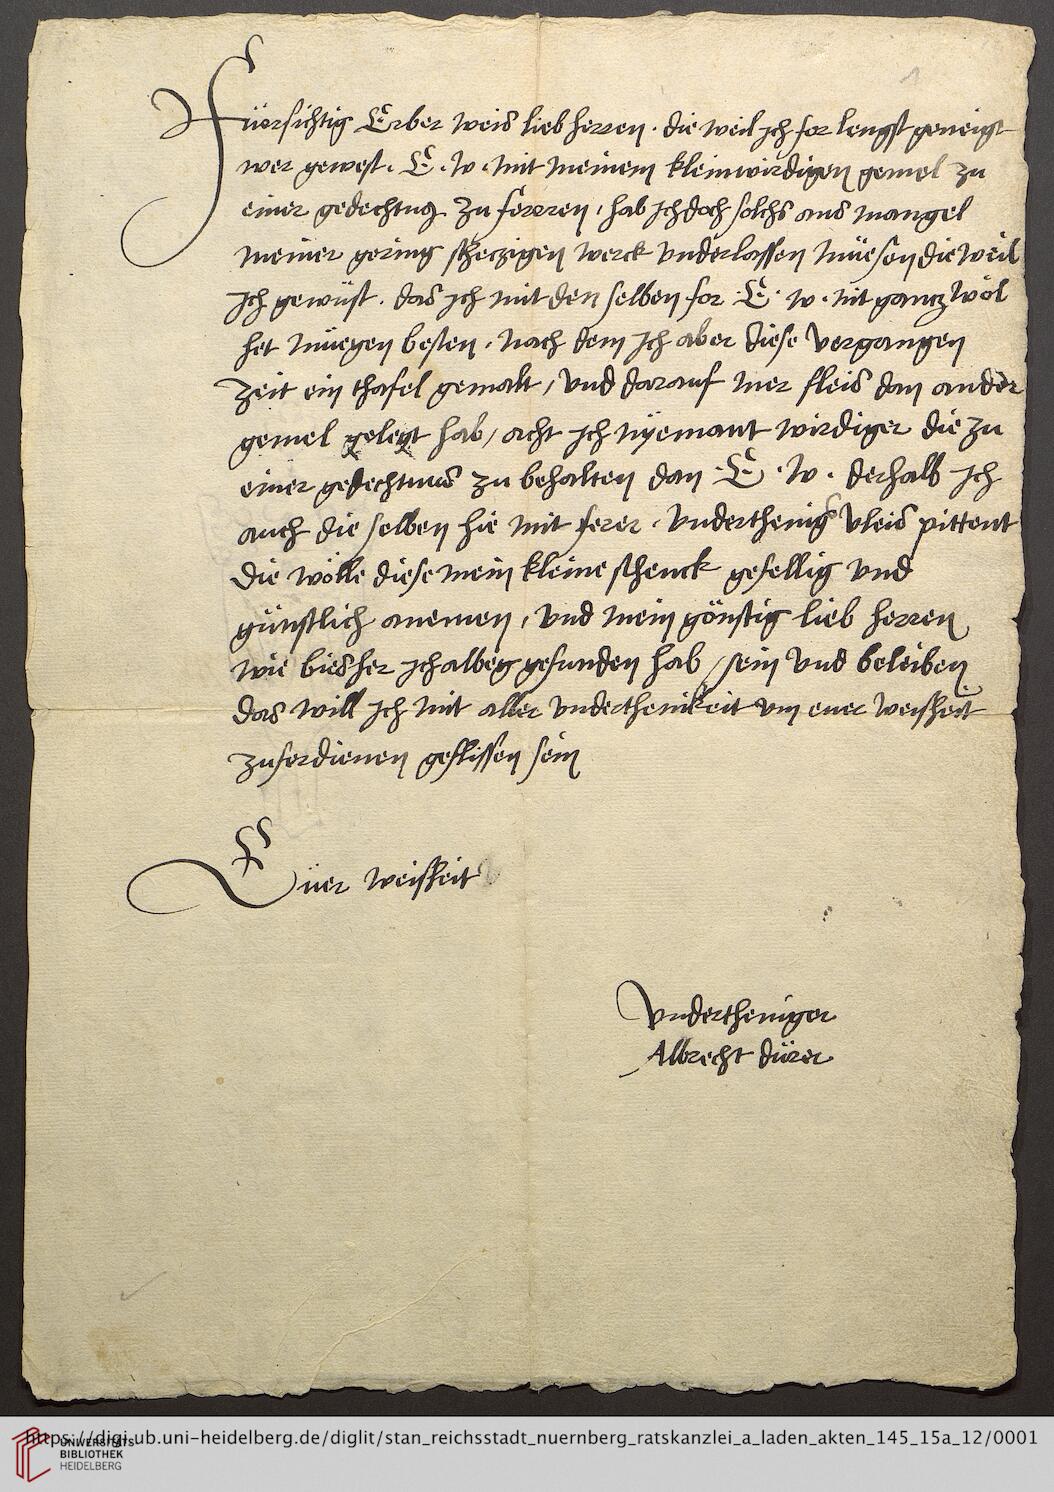 Füersichtig Erber weis lieb herren · die weil jch for lengst geneigt
wer gewest · E · w · mit meinem kleinwirdigen gemel zu
einer gedechtnus zu fereren / hab Ich doch solchs aus mangel
meiner gering scheczigen werck vnderlassen müesen die weil
Ich gewüst · das ich mit den selben for · E · w · nit gancz wol
het müegen besten · Nach dem Ich aber diese vergangen
zeit ein thafel gemalt / vnd darauf mer fleis dan ander
gemel gelegt hab / acht ich nyemant wirdiger die zu
einer gedechtnus zu behalten dan · E · w · derhalb Ich
auch die selben hie mit ferer · vnderthenigs vleis pittent
die wölle diese mein kleine schenck gefellig vnd
günstlich anemen / vnd mein gönstig lieb herren
wie bisher ich albeg gefunden hab / sein vnd beleiben
das will Ich mit aller vnderthenikeit vm euer weisheit
zuferdienen geflissen sein
Eüer weisheit
vndertheniger
Albrecht dürer
https://digi.ub.uni-heidelberg.de/diglit/stan_reichsstadt_nuernberg_ratskanzlei_a_laden_akten_145_15a_12/0001
UNIVERSITÄTS
BIBLIOTHEK
HEIDELBERG